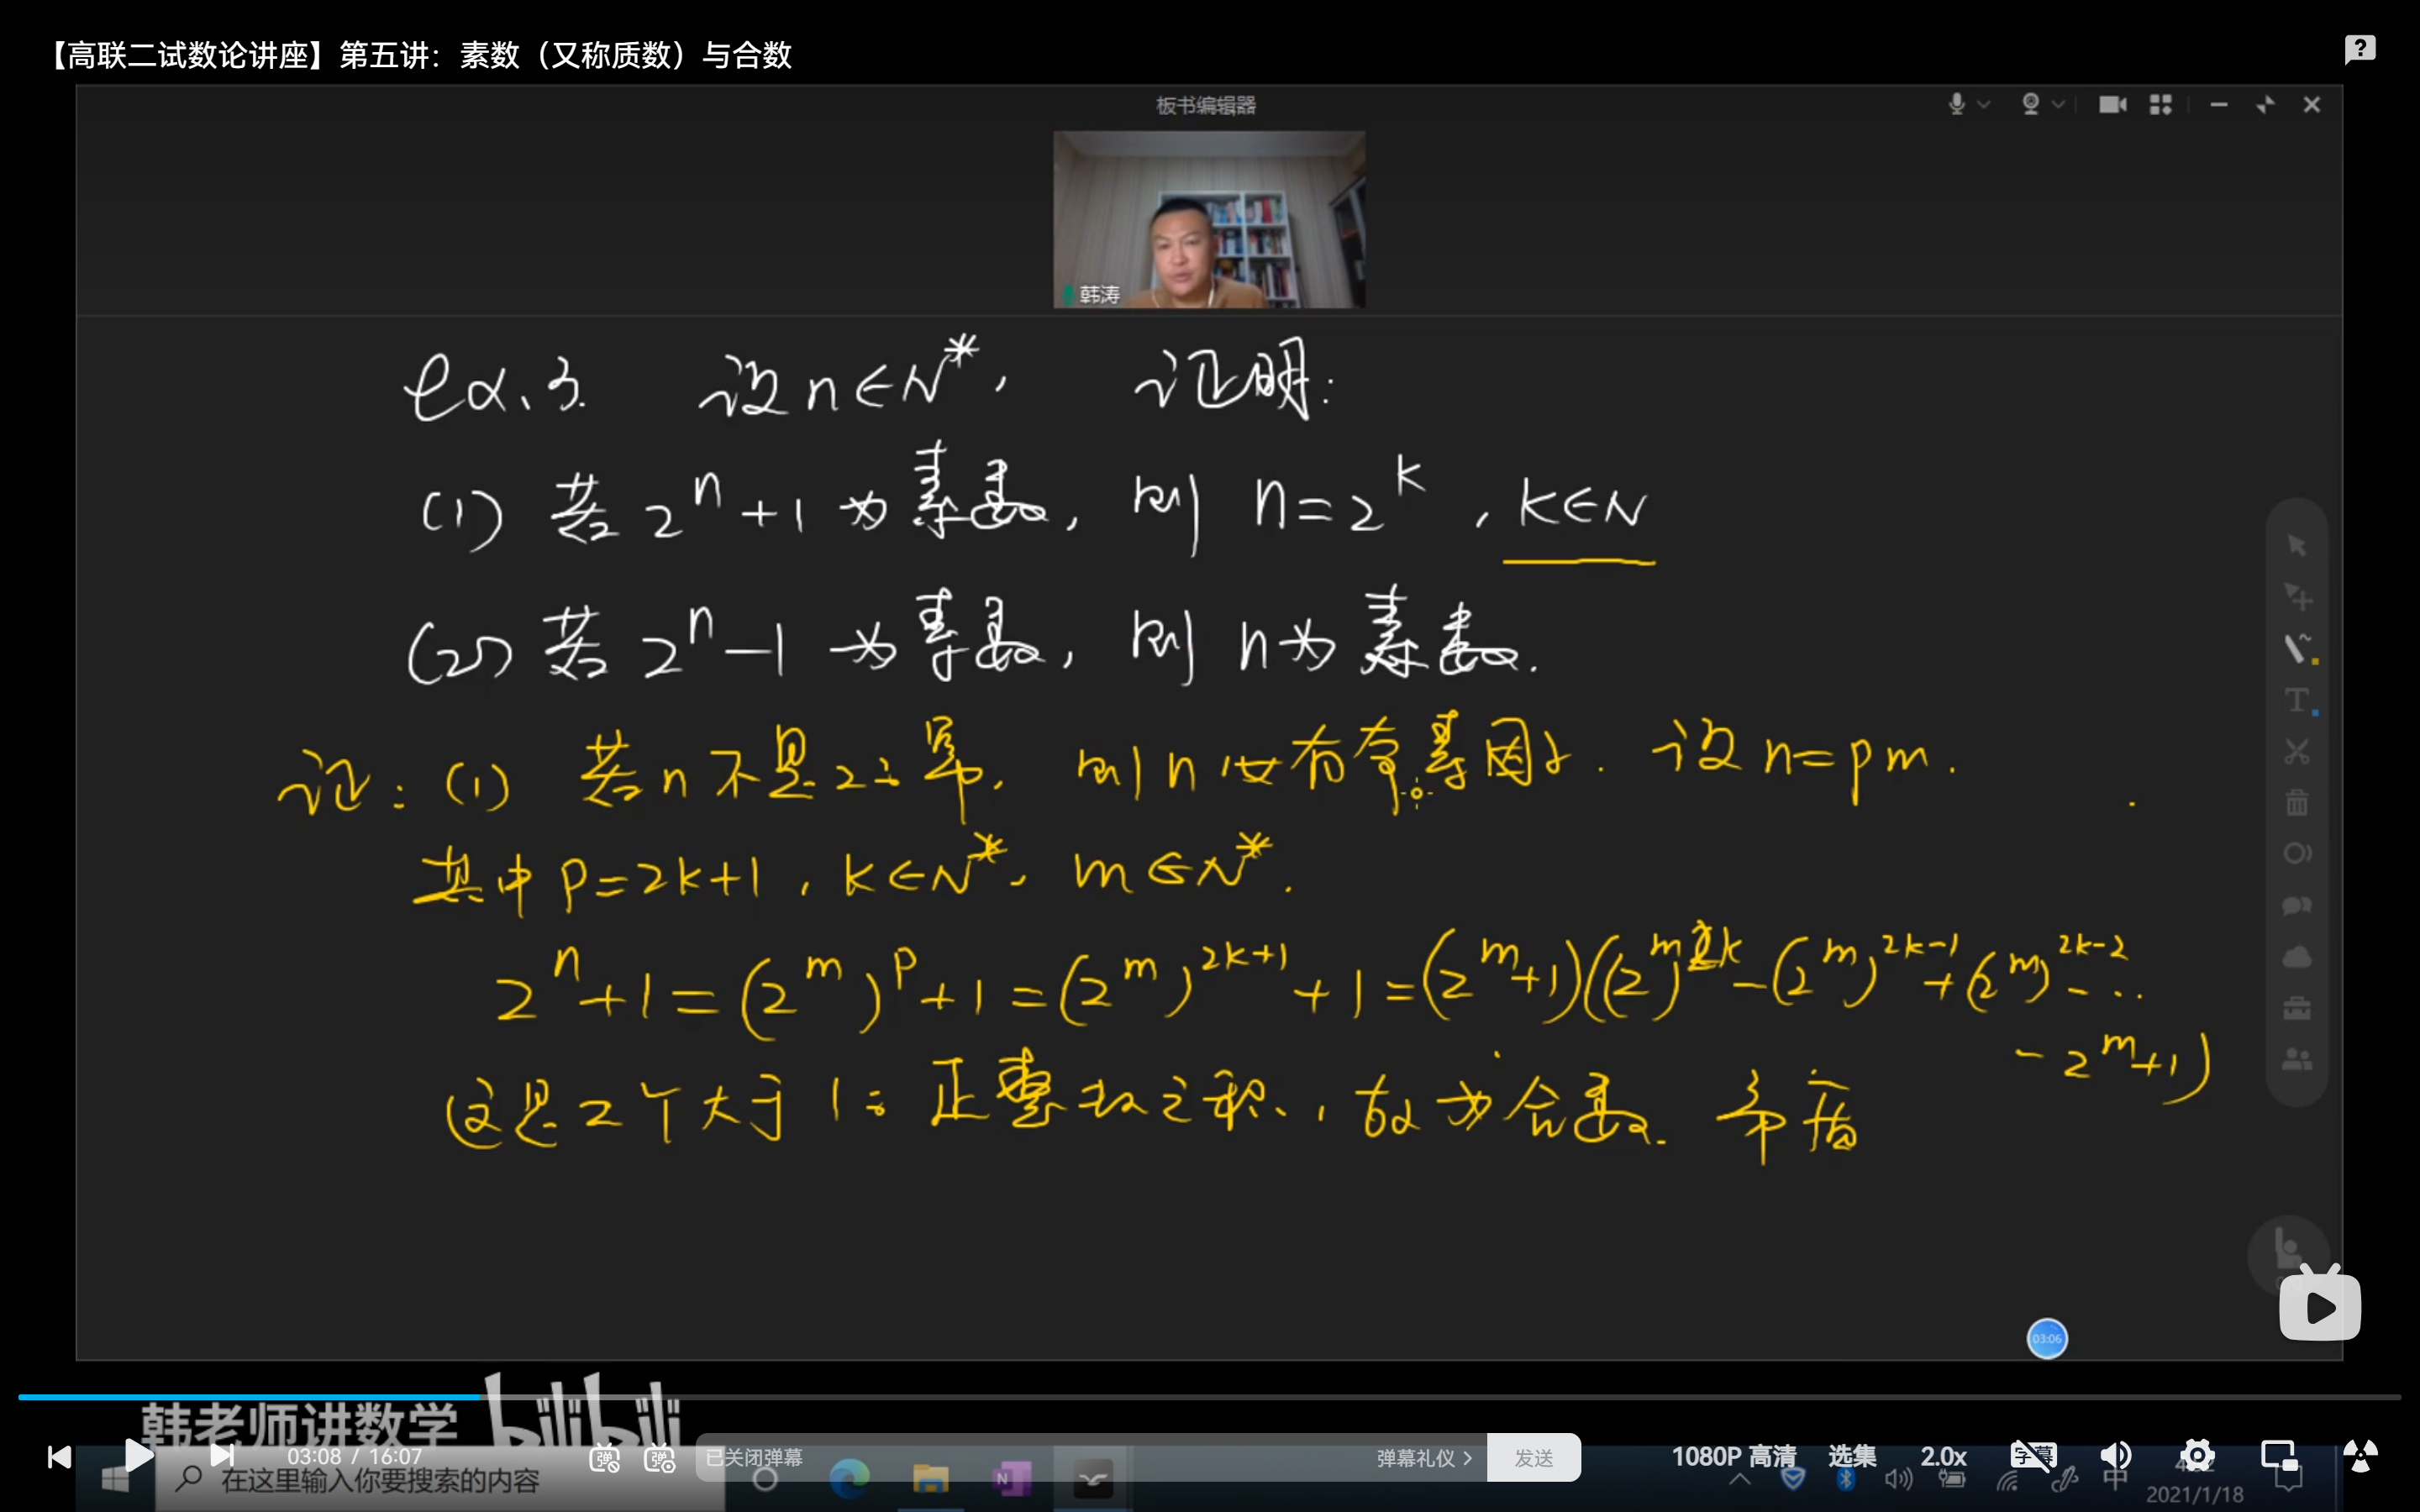 【高联二试数论讲座】第五讲：素数（又称质数）与合数
板书编辑器
韩涛
ex.3. 设n∈N*, 证明:
(1) 若2^n+1为素数, 则 n=2^k, k∈N
(2) 若2^n-1为素数, 则 n为素数.
证: (1) 若n不是2之幂, 则n必有奇素因子. 设n=pm.
其中p=2k+1, k∈N*, m∈N*.
2^n+1=(2^m)^p+1=(2^m)^{2k+1}+1=(2^m+1)((2^m)^{2k}-(2^m)^{2k-1}+(2^m)^{2k-2}-…
-2^m+1)
这是2个大于1之正整数之积, 故为合数. 矛盾
03:06
韩老师讲数学 bilibili
03:08 / 16:07
弹
弹
已关闭弹幕
弹幕礼仪 >
发送
1080P 高清
选集
2.0x
字幕
在这里输入你要搜索的内容
中
2021/1/18